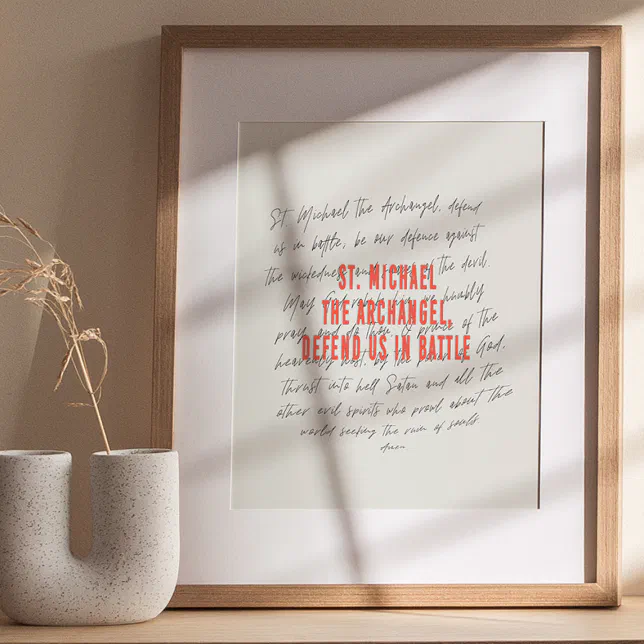 St. Michael the Archangel, defend
us in battle, be our defence against
the wickedness and of the devil.
ST. MICHAEL
May God rebuke him, we humbly
THE ARCHANGEL,
pray, and do thou, O prince of the
DEFEND US IN BATTLE
heavenly host, by the power of God,
thrust into hell Satan and all the
other evil spirits who prowl about the
world seeking the ruin of souls
Amen